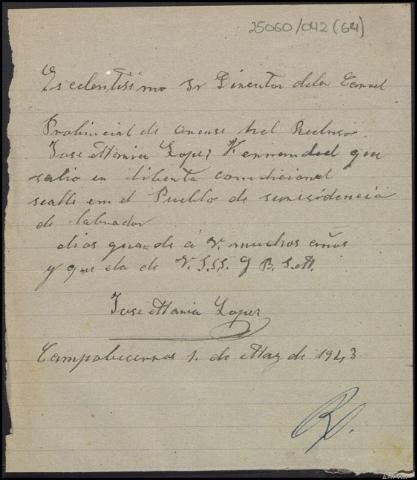 25060/042 (64)
Escelentisimo Sr Director dela Carcel
Probincial de Orense hel Recluso
Jose Maria Lopez Hernandez que
salio en libertá condicional
sealle em el Pueblo de suresidencia
de labrador
dios guarde á V. muchos años
y queda de V. S.S.S. Q B. S. M.
Jose Maria Lopez
Campobecerros 1. de May de 1943